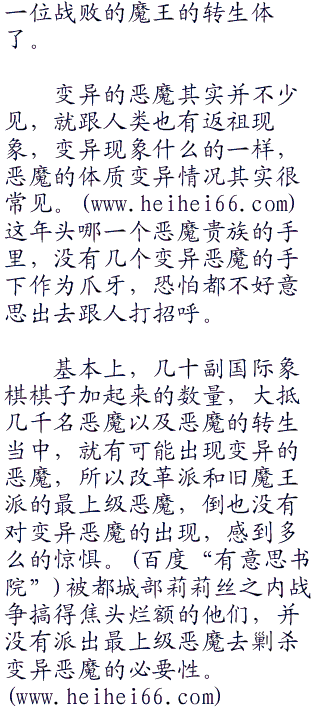 一位战败的魔王的转生体
了。
变异的恶魔其实并不少
见，就跟人类也有返祖现
象，变异现象什么的一样，
恶魔的体质变异情况其实很
常见。(www.heihei66.com)
这年头哪一个恶魔贵族的手
里，没有几个变异恶魔的手
下作为爪牙，恐怕都不好意
思出去跟人打招呼。
基本上，几十副国际象
棋棋子加起来的数量，大抵
几千名恶魔以及恶魔的转生
当中，就有可能出现变异的
恶魔，所以改革派和旧魔王
派的最上级恶魔，倒也没有
对变异恶魔的出现，感到多
么的惊惧。(百度“有意思书
院”)被都城部莉莉丝之内战
争搞得焦头烂额的他们，并
没有派出最上级恶魔去剿杀
变异恶魔的必要性。
(www.heihei66.com)